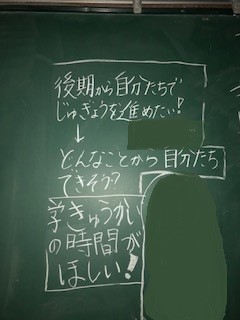 後期から自分たちで
じゅぎょうを進めたい!
↓
どんなことから自分たち
できそう?
学きゅうかい
の時間が
ほしい!